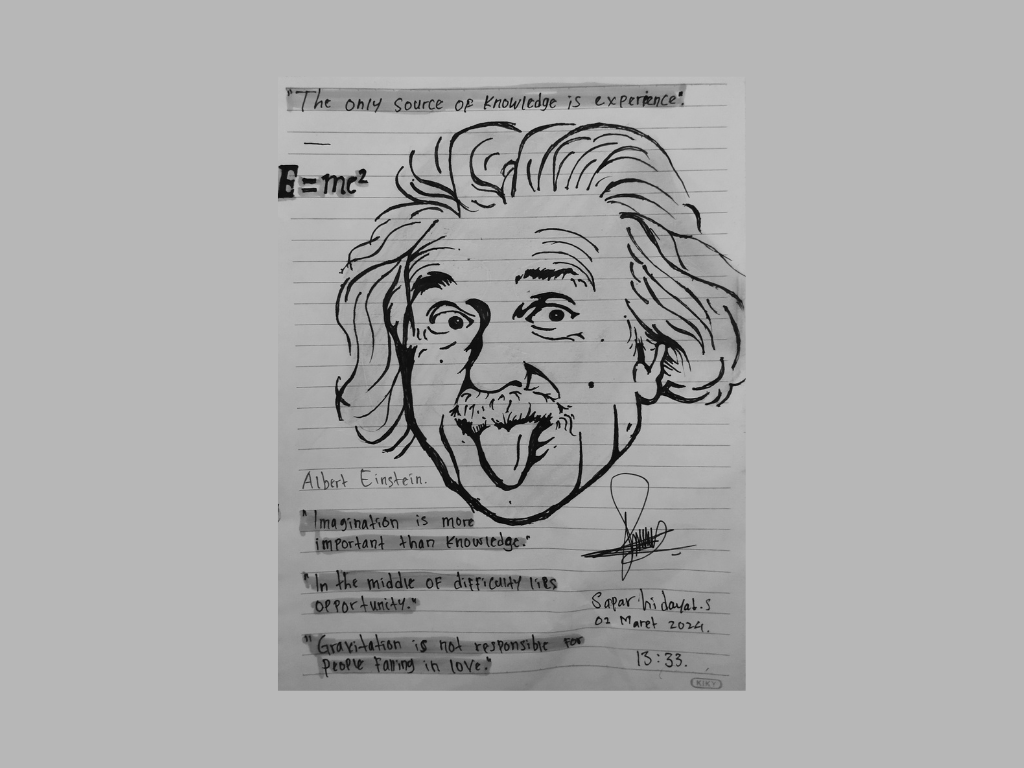 "The only source of knowledge is experience".
E=mc²
Albert Einstein.
"Imagination is more
important than knowledge."
"In the middle of difficulty lies
opportunity."
"Gravitation is not responsible for
people falling in love."
Sapar.hidayat.S
02 Maret 2024.
13:33.
KIKY